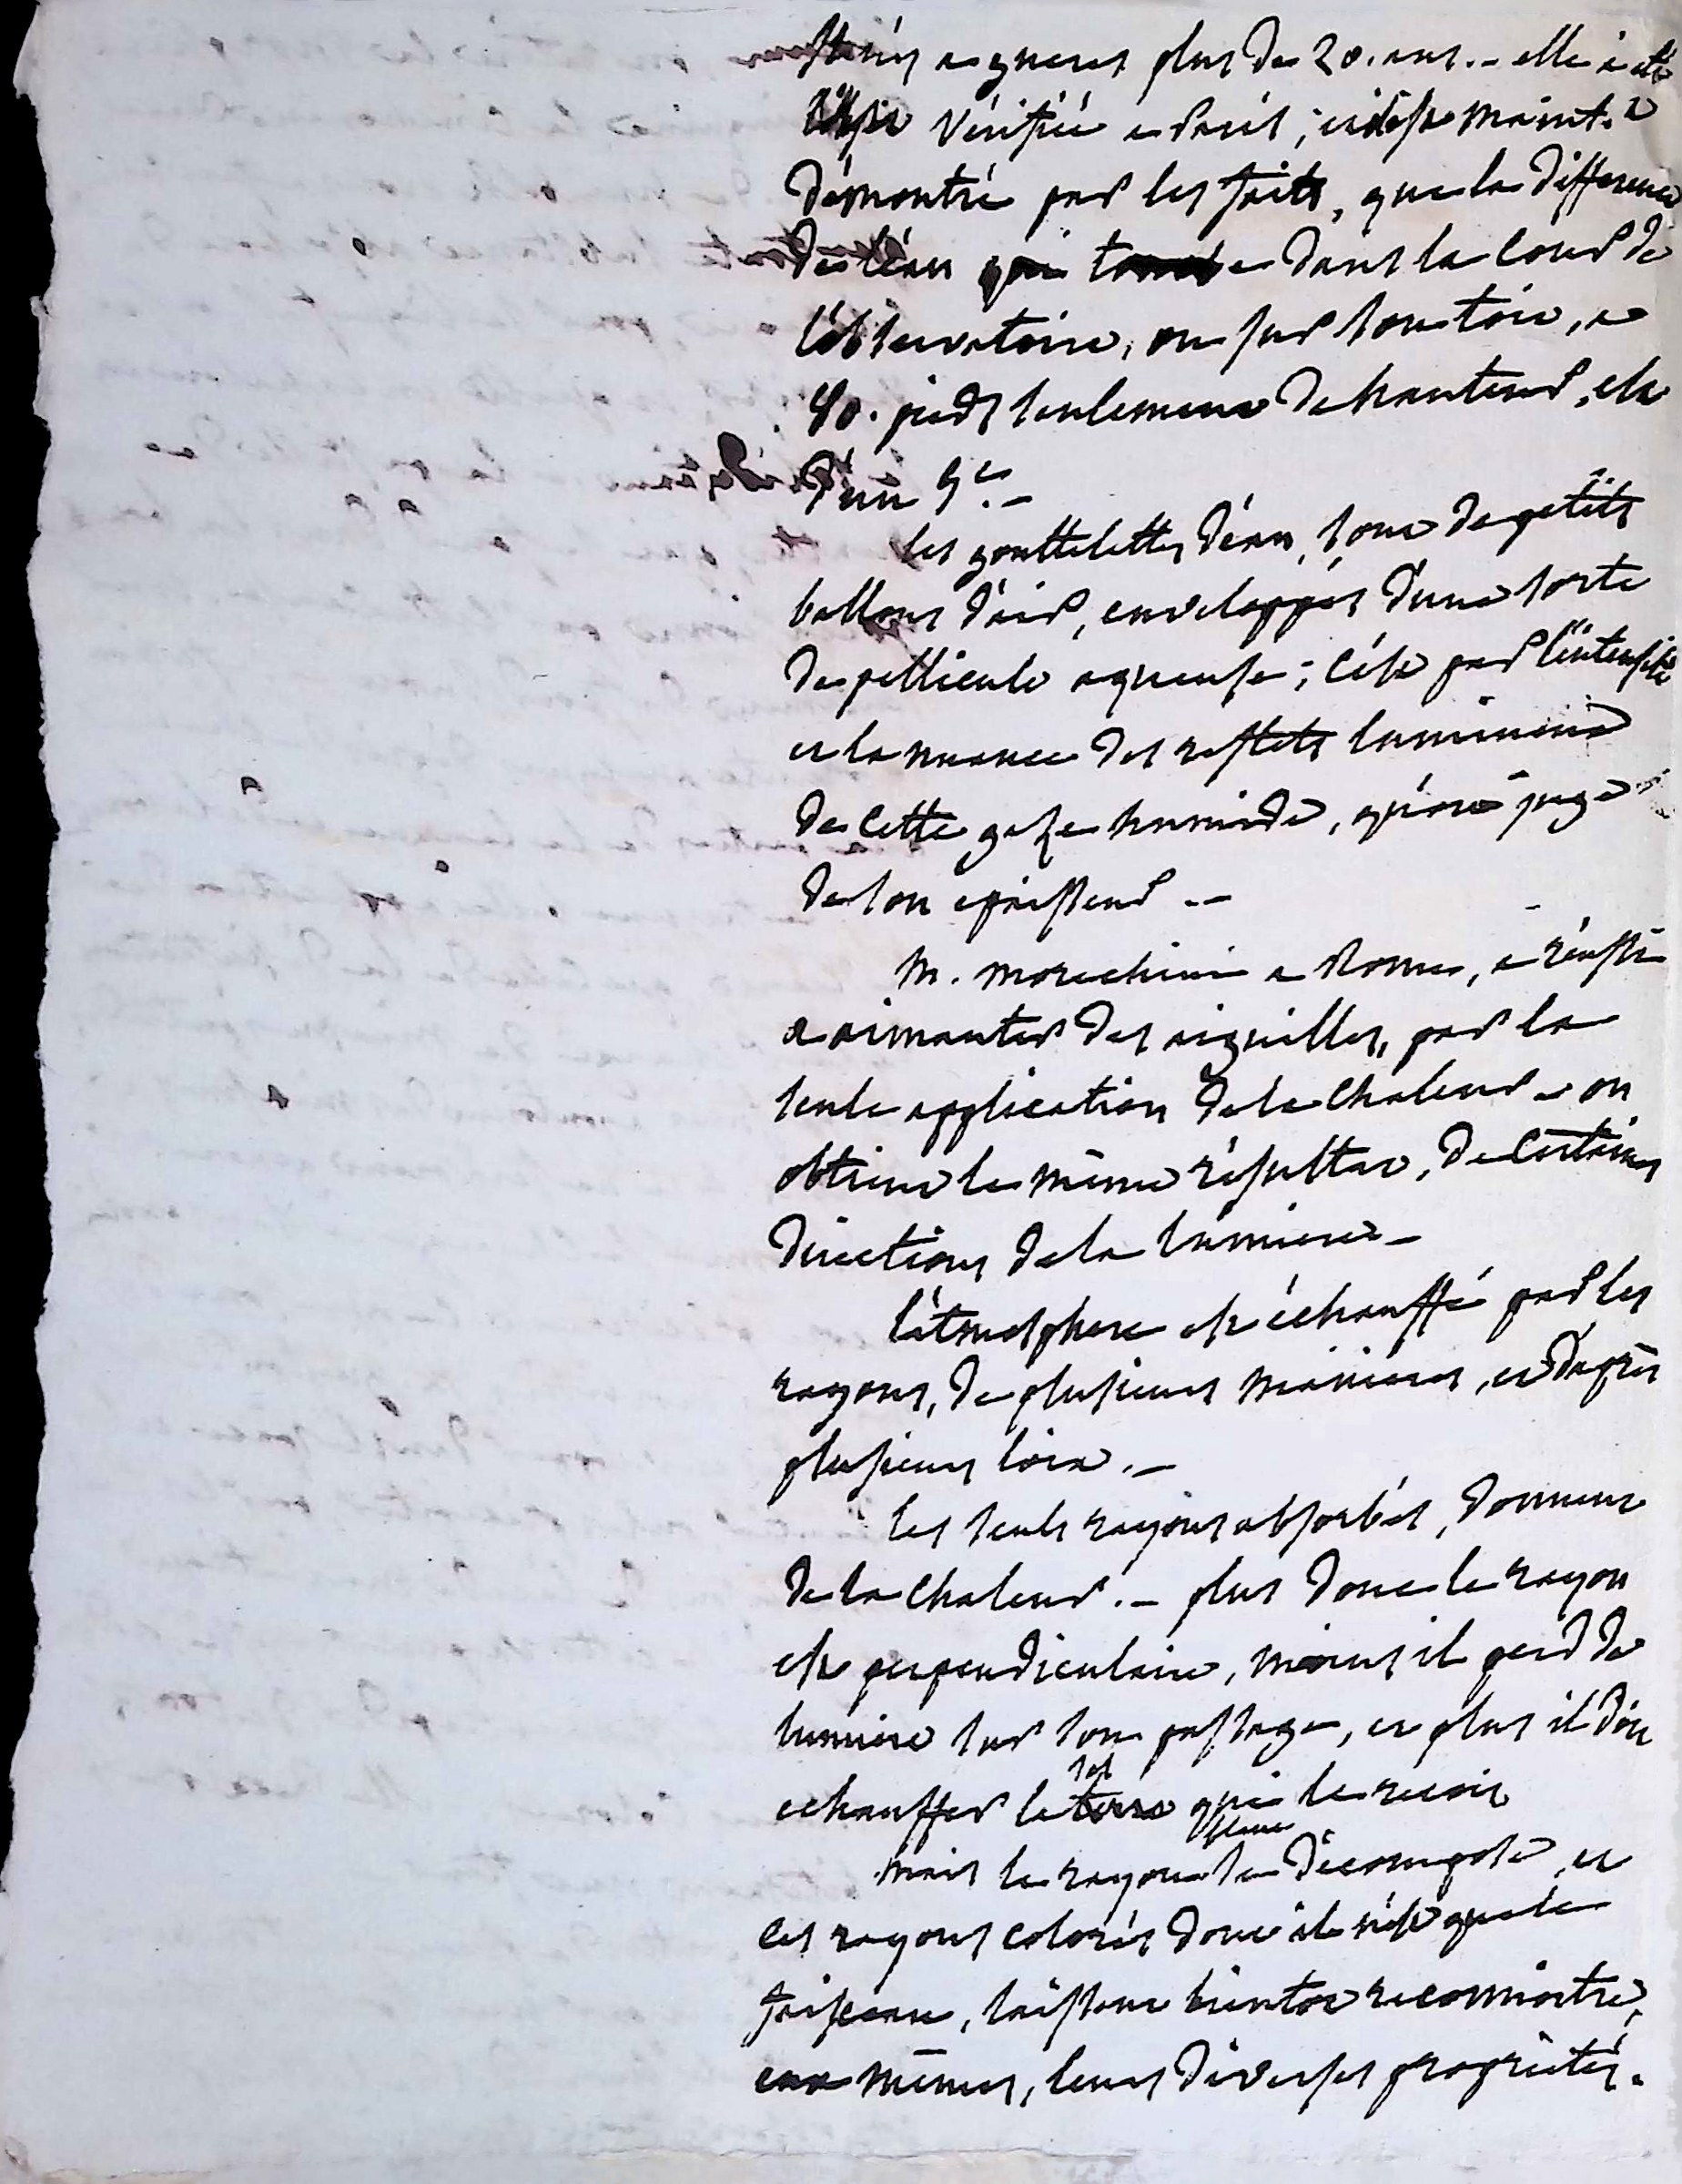 il n'y a gueres plus de 20. ans. - elle a été
vérifiée a Paris ; et il est maint.t
démontré par les faits, que la difference
de l'eau qui tombe dans la cour de
l'observatoire, ou sur son toit, a
40. pieds seulement de hauteur, est
d'un 5e. -
les gouttelettes d'eau, sont de petits
ballons d'air, enveloppés d'une sorte
de pellicule aqueuse ; c'est par l'intensité
et la nuance des reflets lumineux
de cette gaze humide, qu'on juge
de son epaisseur --
M. Morechini a Rome, a réussi
a aimanter des aiguilles, par la
seule application de la chaleur - on
obtient le même résultat, de certaines
directions de la lumiere -
l'atmosphere est échauffé par les
rayons, de plusieurs manieres, et d'après
plusieurs loix. -
les seuls rayons absorbés, donnent
de la chaleur. - plus donc le rayon
est perpendiculaire, moins il perd de
lumiere sur son passage, et plus il doit
echauffer le sol qui le recoit
mais le rayon se décompose, et
les rayons colorés dont il n'est que le
faisceau, laissent bientot reconnoitre,
eux mêmes, leurs diverses proprietés.